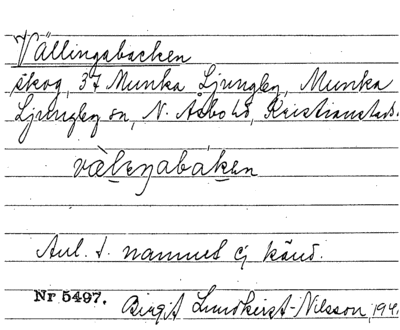 Vällingsbacken
skog, 37 Munka Ljungby, Munka
Ljungby sn, N. Åsbo hd, Kristianstads.
Anl. t. namnet ej känd.
Nr 5497. Birgit Lundkvist-Nilsson,